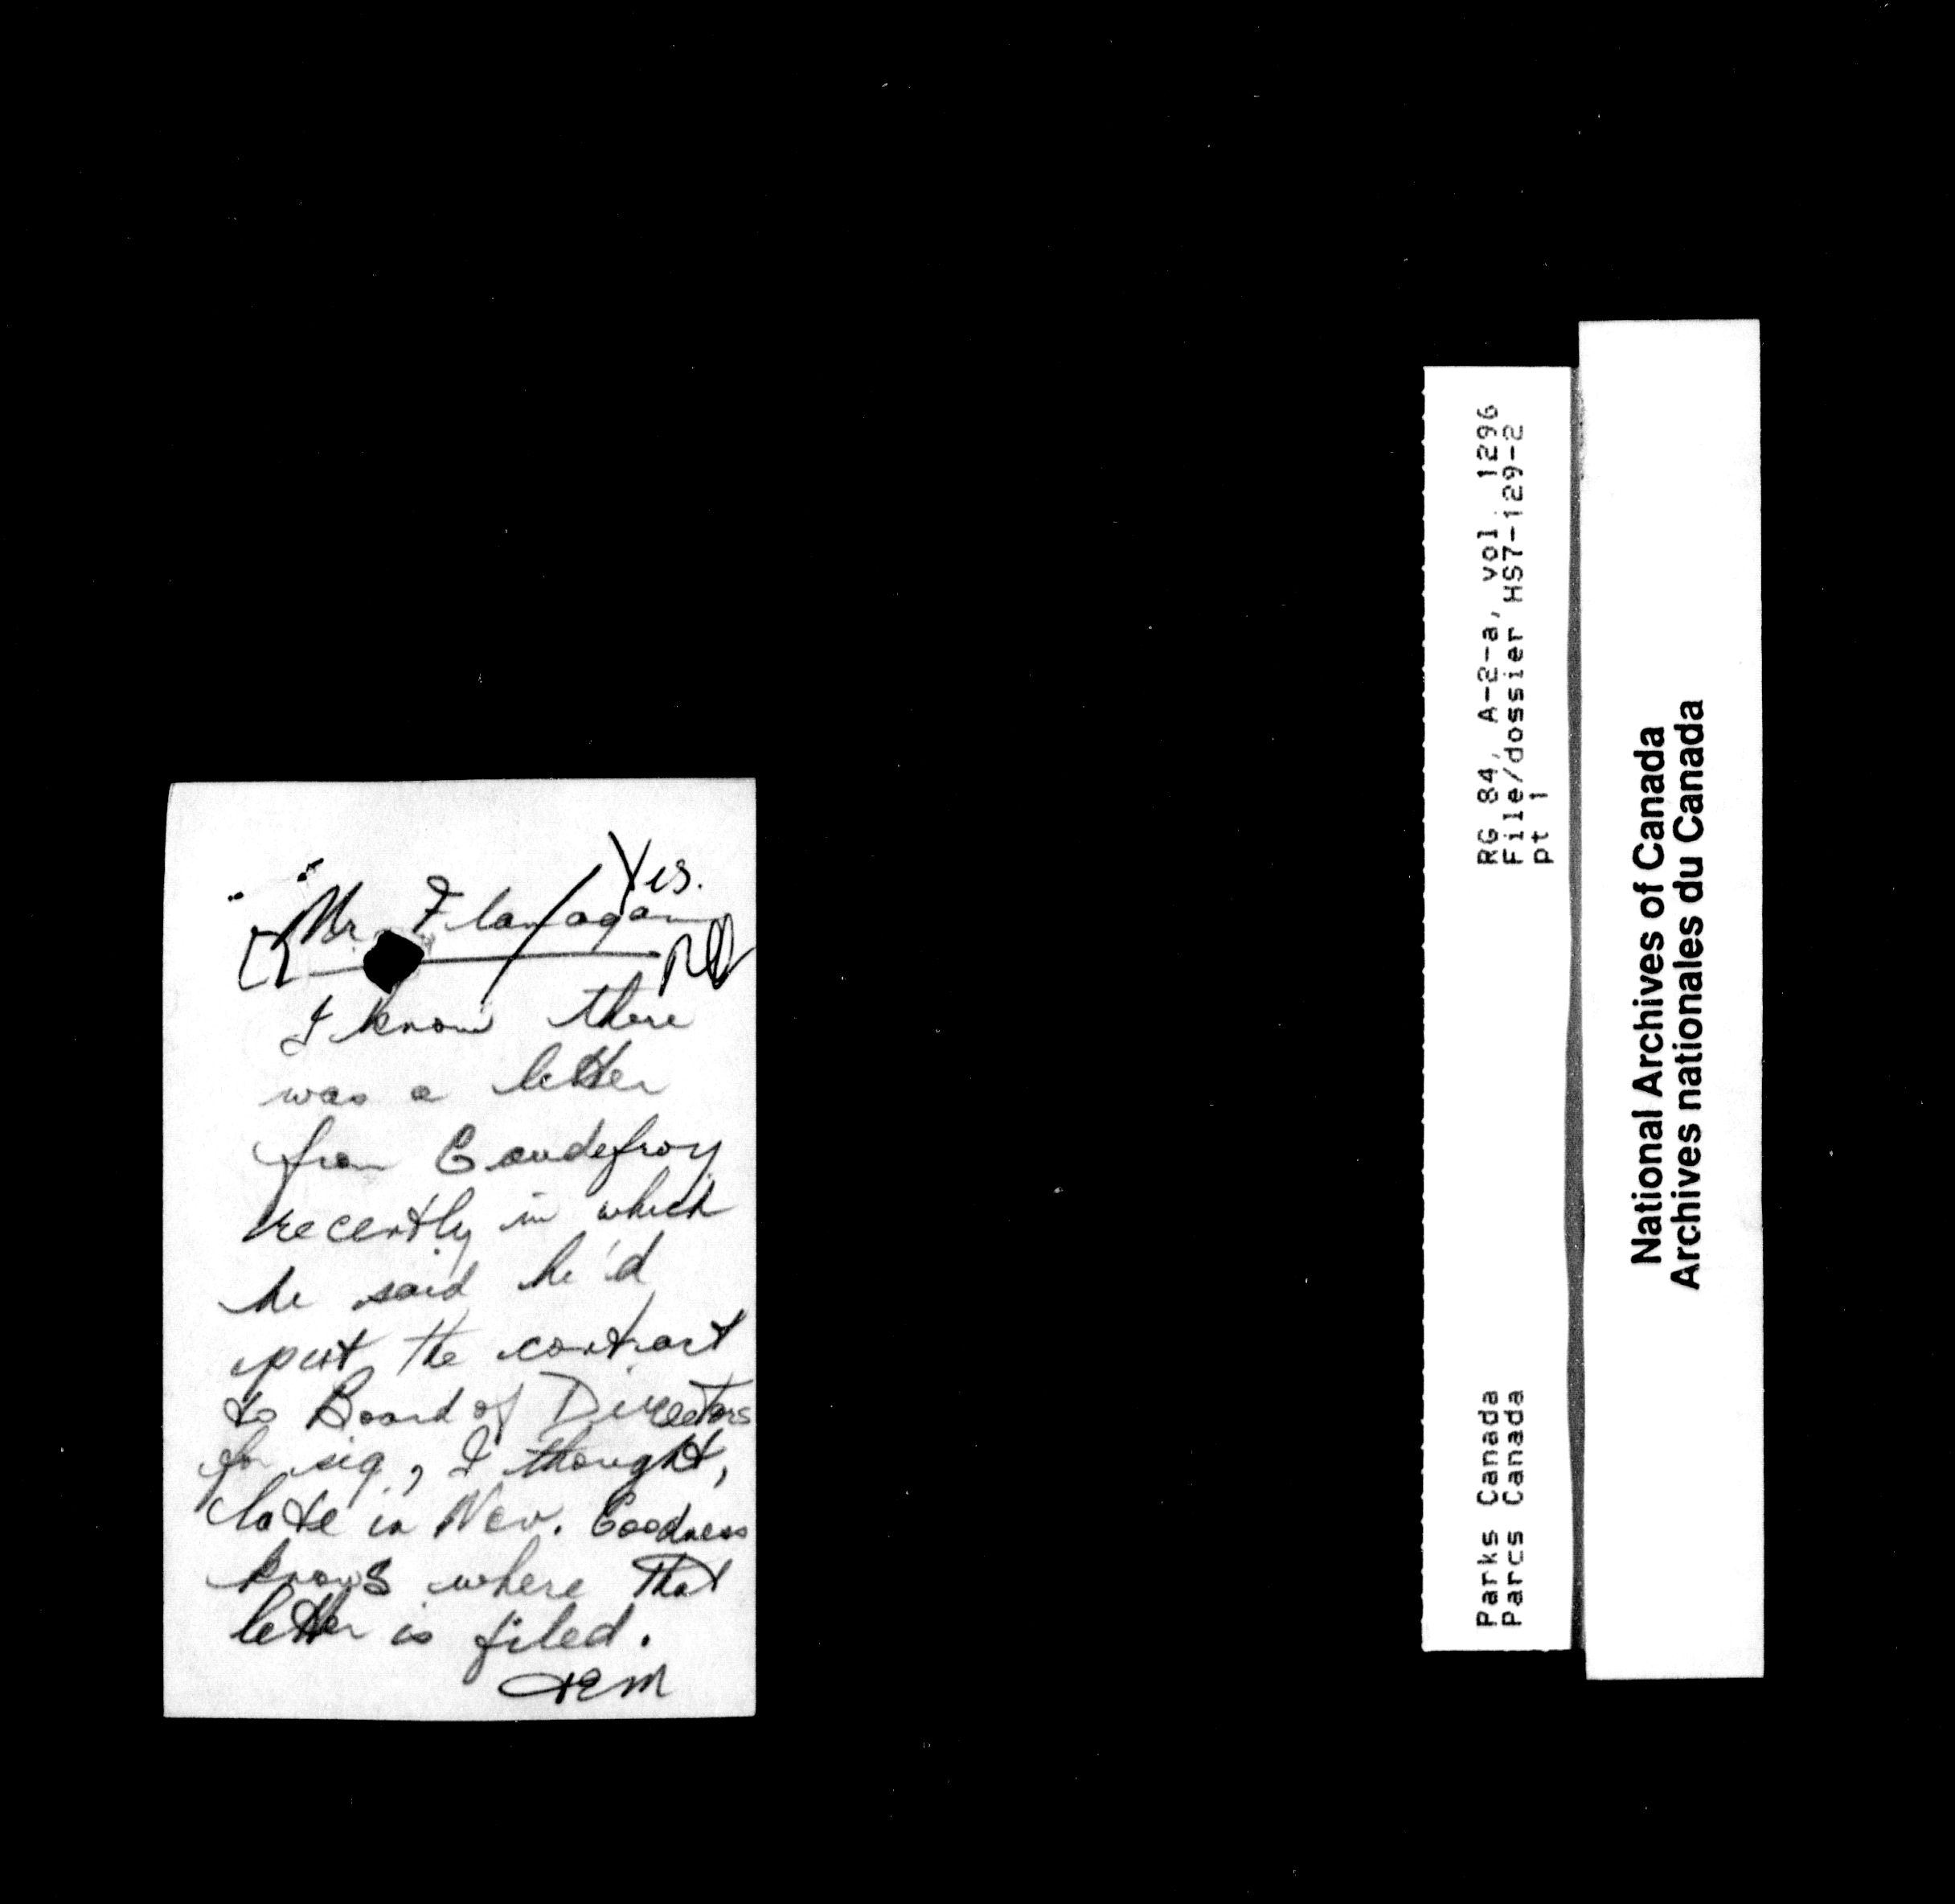 Yes.
Mr. Flanagan
I know there
was a letter
from Gaudefroy
recently in which
he said he'd
put the contract
to Board of Directors
for sig, I thought,
late in Nov. Goodness
knows where that
letter is filed.
RG 84, A-2-a, vol. 1296
File/dossier HS7-129-2
pt 1
Parks Canada
Parcs Canada
National Archives of Canada
Archives nationales du Canada